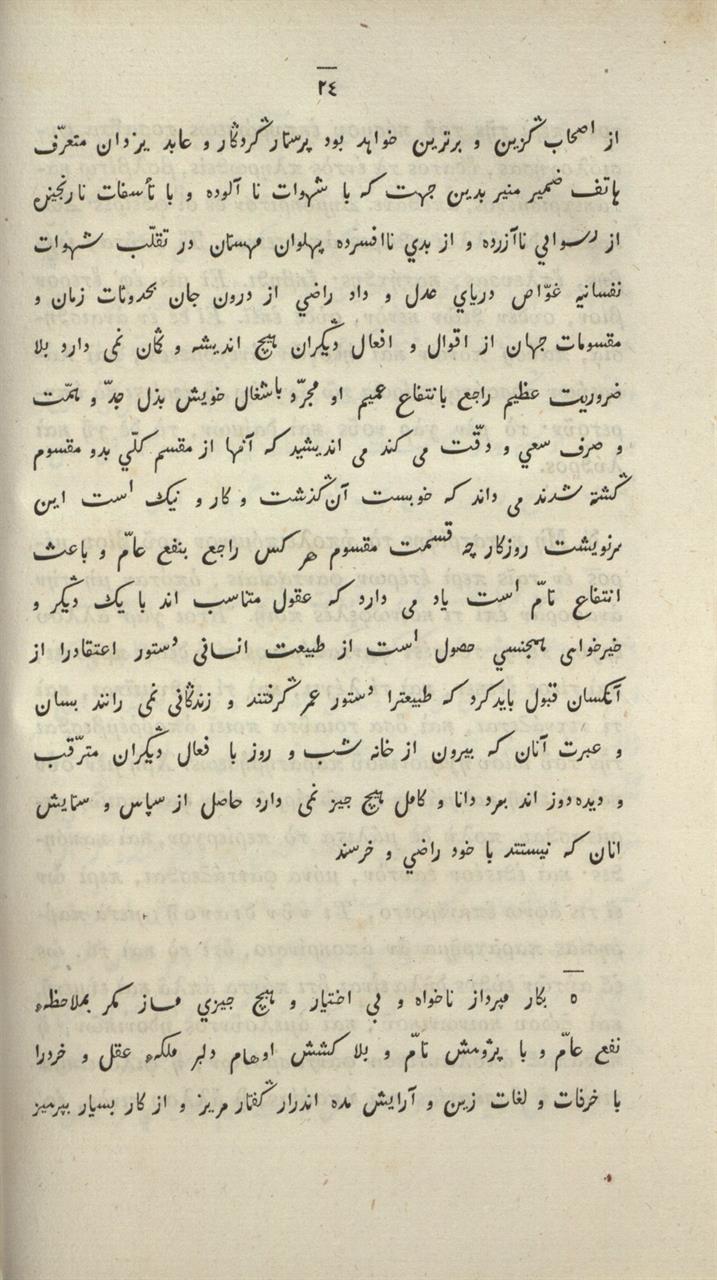 ٢٤
از اصحاب گزین و برترین خواهد بود پرستار کردگار و عابد یزدان متعرّف
هاتف ضمیر منیر بدین جهت که با شهوات نا آلوده و با تأسفات نارنجیده
از رسوایي ناآزرده و از بدي ناافسرده پهلوان مهستان در تقلّب شهوات
نفسانیه غوّاص دریاي عدل و داد راضي از درون جان بحدوثات زمان و
مقسومات جهان از اقوال و افعال دیگران هیچ اندیشه و گمان نمی دارد بلا
ضروریت عظیم راجع بانتفاع عمیم او مجرّد باشغال خویش بذل جدّ و همّت
و صرف سعي و دقّت می کند می اندیشید که آنها از مقسم کلّي بدو مقسوم
گشته شدند می داند که خوبست آن گذشت و کار و نیك است این
سرنویشت روزکار چه قسمت مقسوم هر کس راجع بنفع عامّ و باعث
انتفاع تامّ است یاد می دارد که عقول متناسب اند با یك دیگر و
خیرخواهی همجنسي حصول است از طبیعت انسانی دستور اعتقادرا از
آنکسان قبول باید کرد که طبیعترا دستور عمر گرفتند و زندگانی نمی رانند بسان
و عبرت آنان که بیرون از خانه شب و روز با فعال دیگران مترّقب
و دیده دوز اند بمرد دانا و کامل هیچ چیز نمی دارد حاصل از سپاس و ستایش
انان که نیستند با خود راضي و خرسند
٥ بکار مپرداز ناخواه و بی اختیار و هیچ چیزي مساز مکر بملاحظهٔ
نفع عامّ و با پژومش تامّ و بلا کشش اوهام دلبر ملکهٔ عقل و خردرا
با خرفات و لغات زین و آرایش مده اندرار گفتار مریز و از کار بسیار بپرهیز